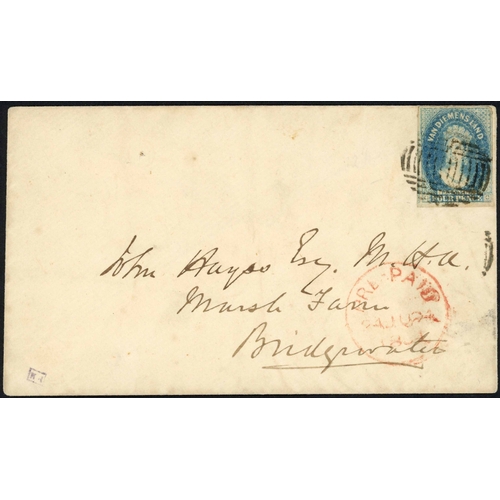 VAN DIEMENS LAND
FOUR PENCE
John Hayes Esq. M.H.A.
Marsh Farm
Bridgewater
PRE-PAID